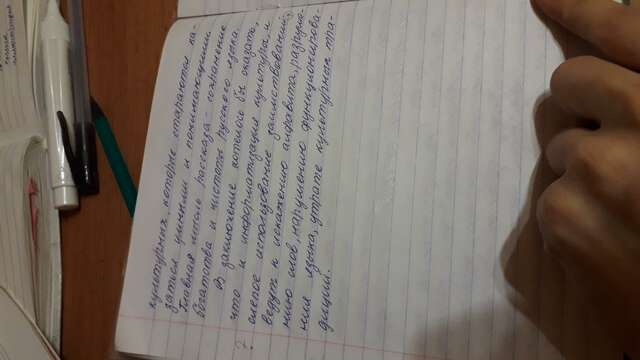 культурных, которые стараются ка-
заться умными и понимающими.
Главная мысль рассказа - сохранение
богатства и чистоты русского языка.
В заключение хотелось бы сказать,
что и информатизация культуры, и
слепое использование заимствований,
ведут к искажению алфавита, разруше-
нию слов, нарушению функционирова-
ния языка, утрате культурных тра-
диций.
?